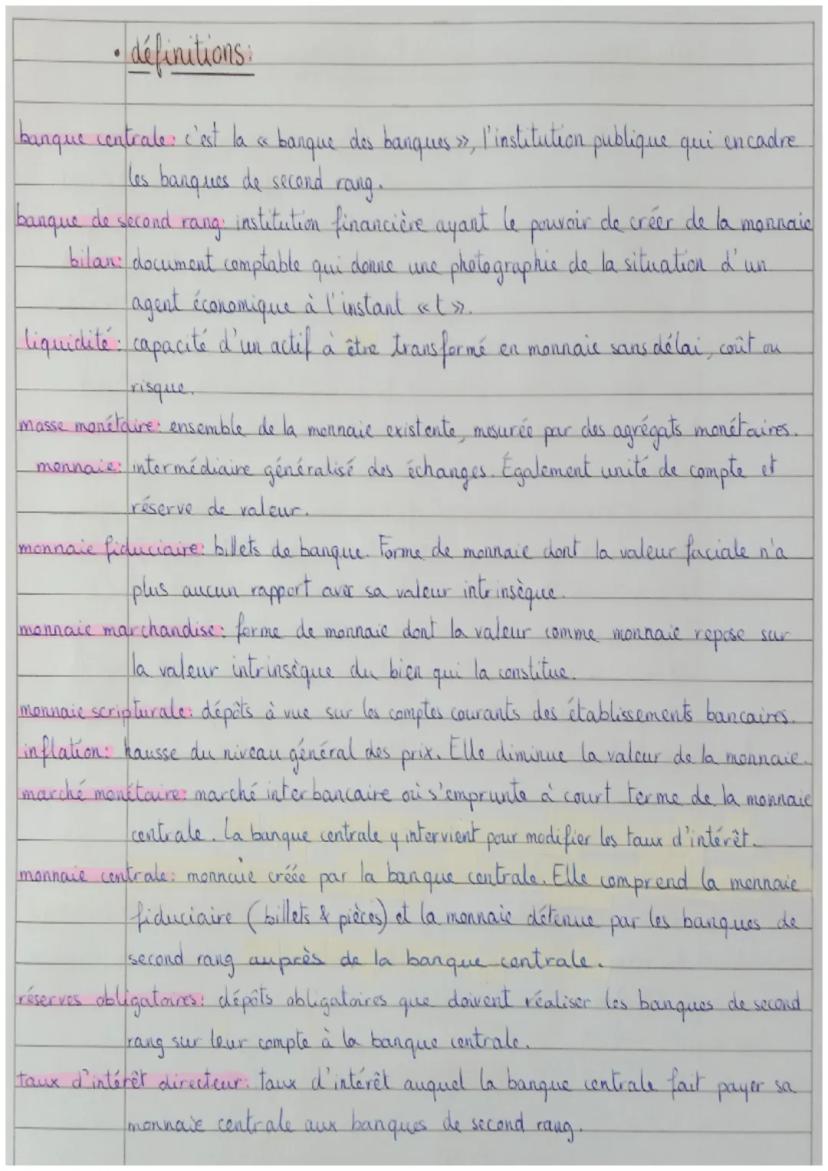 • définitions:
banque centrale: c'est la « banque des banques », l'institution publique qui encadre
les banques de second rang.
banque de second rang: institution financière ayant le pouvoir de créer de la monnaie
bilan: document comptable qui donne une photographie de la situation d'un
agent économique à l'instant « t ».
liquidité: capacité d'un actif à être transformé en monnaie sans délai, coût ou
risque.
masse monétaire: ensemble de la monnaie existente, mesurée par des agrégats monétaires.
monnaie: intermédiaire généralisé des échanges. Également unité de compte et
réserve de valeur.
monnaie fiduciaire: billets de banque. Forme de monnaie dont la valeur faciale n'a
plus aucun rapport avec sa valeur intrinsèque.
monnaie marchandise: forme de monnaie dont la valeur comme monnaie repose sur
la valeur intrinsèque du bien qui la constitue.
monnaie scripturale: dépôts à vue sur les comptes courants des établissements bancaires.
inflation: hausse du niveau général des prix. Elle diminue la valeur de la monnaie.
marché monétaire: marché interbancaire où s'emprunte à court terme de la monnaie
centrale. La banque centrale y intervient pour modifier les taux d'intérêt.
monnaie centrale: monnaie créée par la banque centrale. Elle comprend la monnaie
fiduciaire (billets & pièces) et la monnaie détenue par les banques de
second rang auprès de la banque centrale.
réserves obligatoires: dépôts obligatoires que doivent réaliser les banques de second
rang sur leur compte à la banque centrale.
taux d'intérêt directeur: taux d'intérêt auquel la banque centrale fait payer sa
monnaie centrale aux banques de second rang.